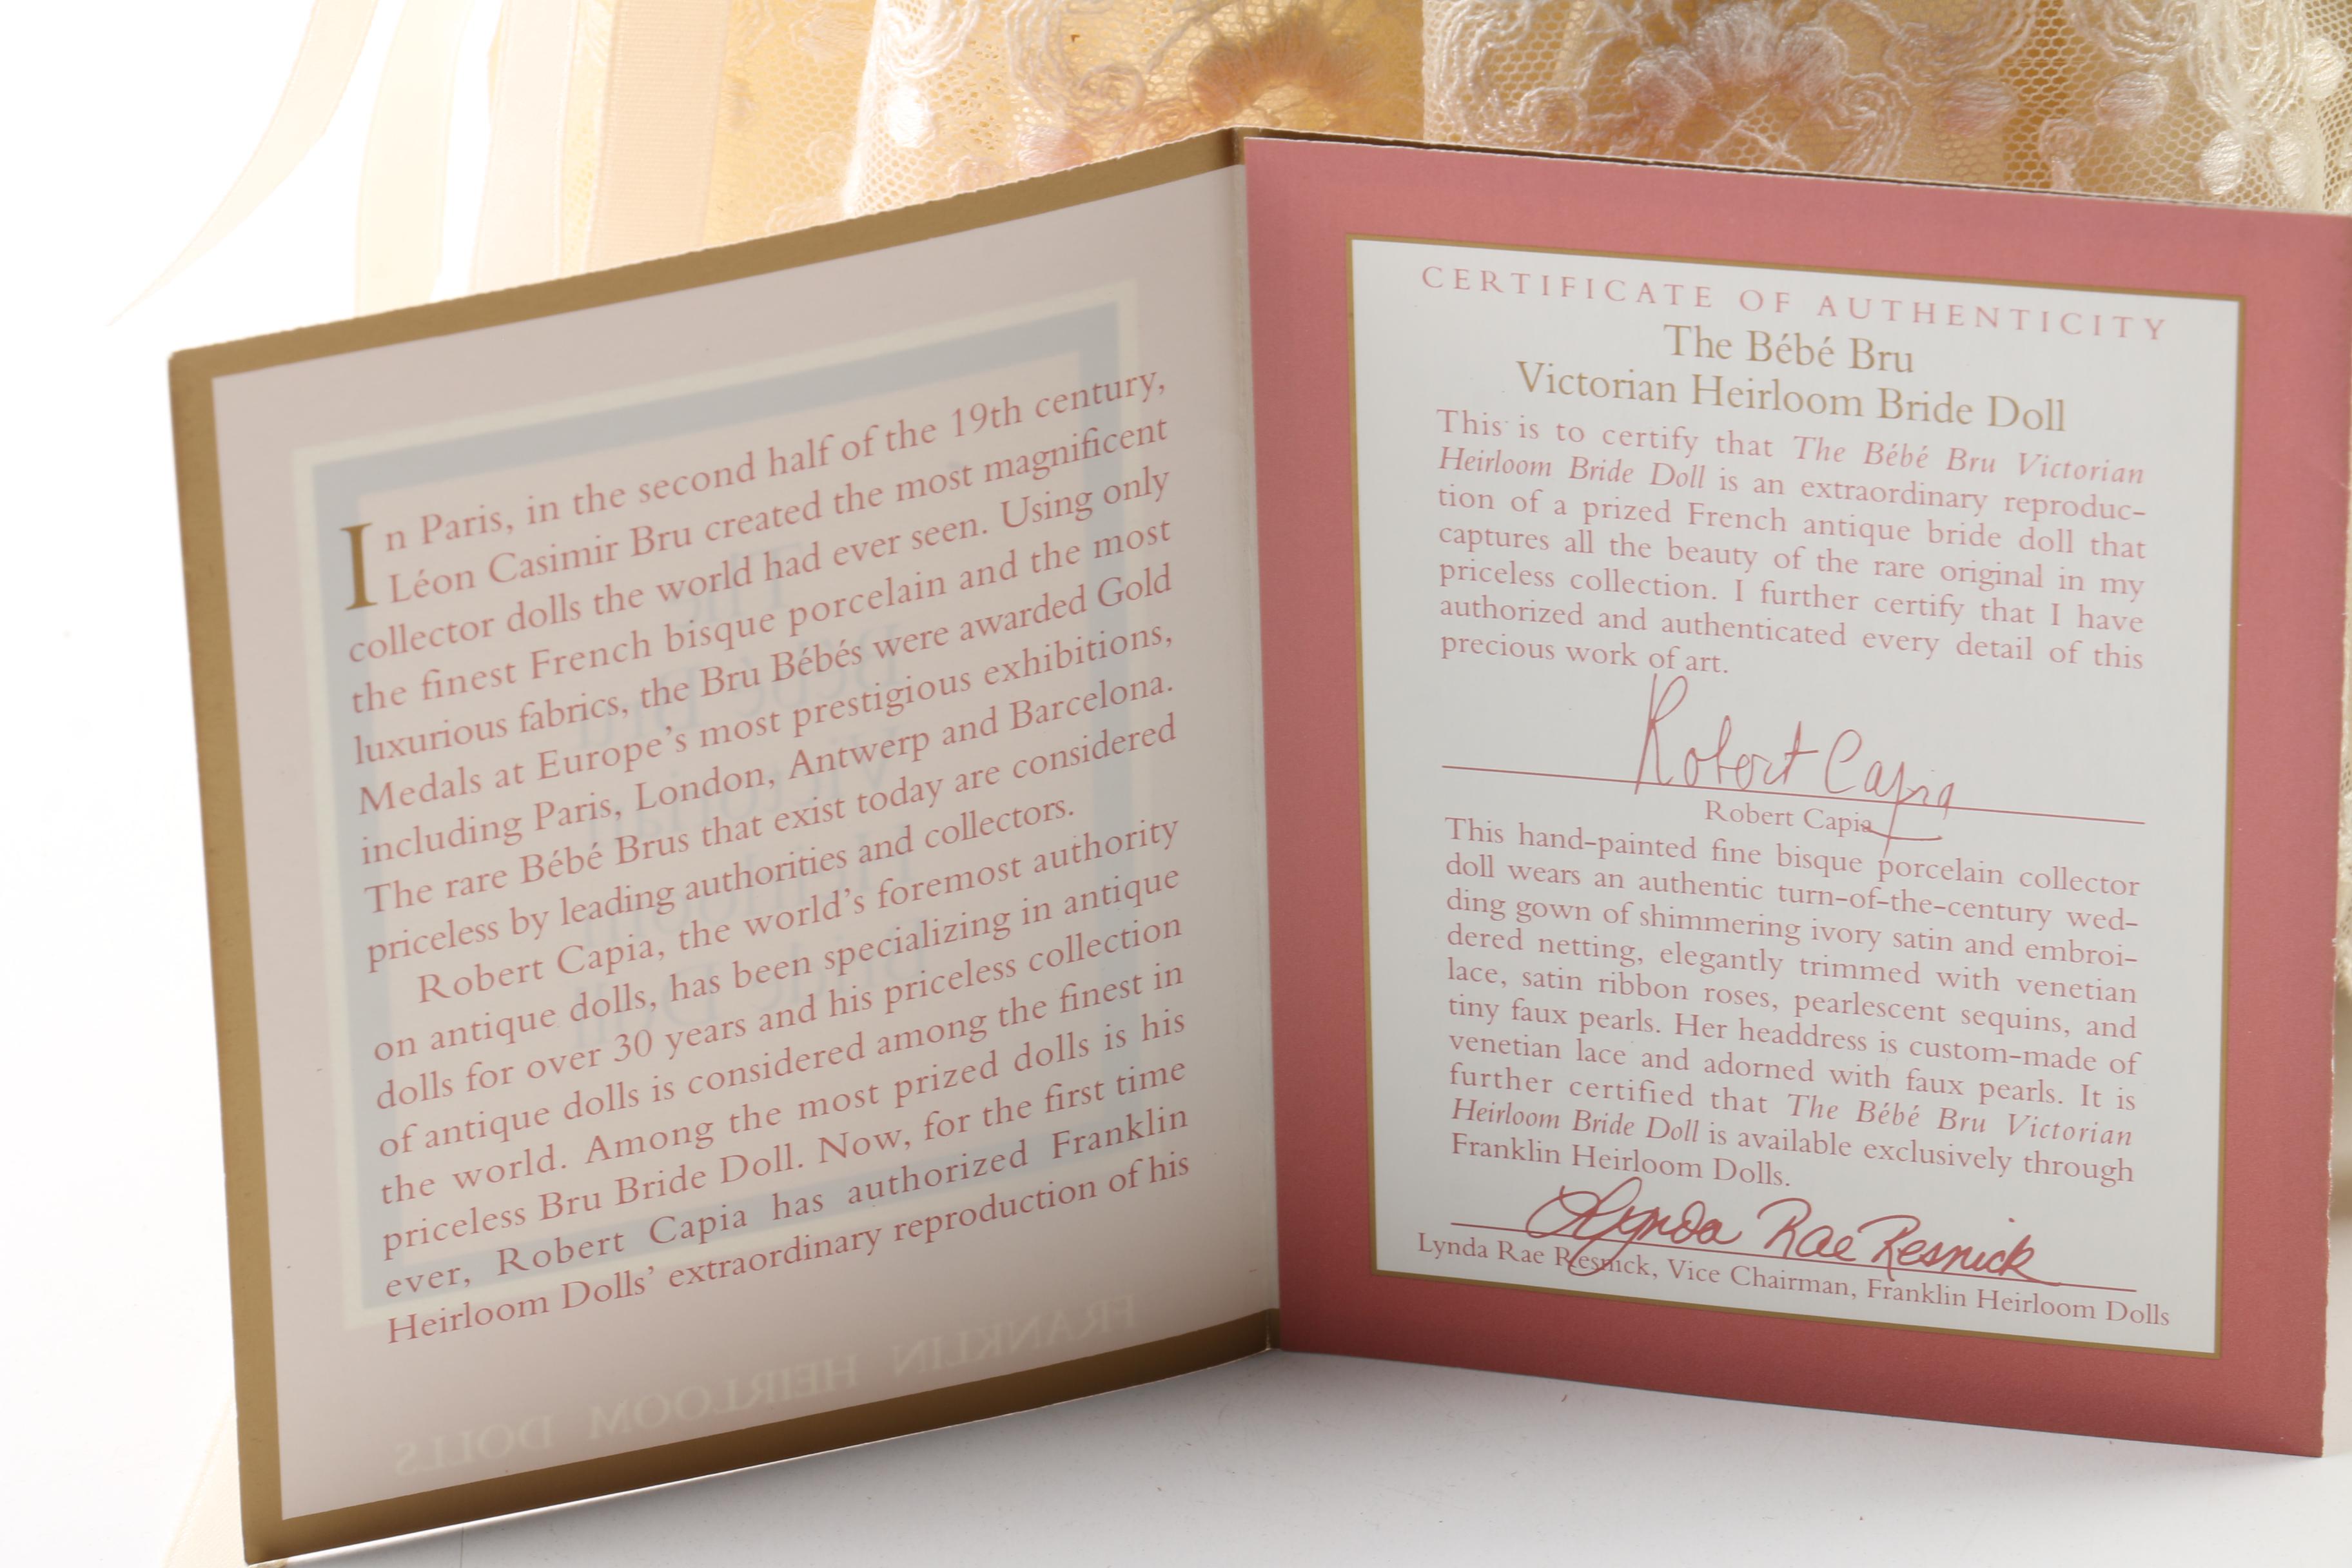 In Paris, in the second half of the 19th century,
Léon Casimir Bru created the most magnificent
collector dolls the world had ever seen. Using only
the finest French bisque porcelain and the most
luxurious fabrics, the Bru Bébés were awarded Gold
Medals at Europe's most prestigious exhibitions,
including Paris, London, Antwerp and Barcelona.
The rare Bébé Brus that exist today are considered
priceless by leading authorities and collectors.
Robert Capia, the world's foremost authority
on antique dolls, has been specializing in antique
dolls for over 30 years and his priceless collection
of antique dolls is considered among the finest in
the world. Among the most prized dolls is his
priceless Bru Bride Doll. Now, for the first time
ever, Robert Capia has authorized Franklin
Heirloom Dolls' extraordinary reproduction of his
FRANKLIN HEIRLOOM DOLLS
CERTIFICATE OF AUTHENTICITY
The Bébé Bru
Victorian Heirloom Bride Doll
This is to certify that The Bébé Bru Victorian
Heirloom Bride Doll is an extraordinary reproduc-
tion of a prized French antique bride doll that
captures all the beauty of the rare original in my
priceless collection. I further certify that I have
authorized and authenticated every detail of this
precious work of art.
Robert Capia
Robert Capia
This hand-painted fine bisque porcelain collector
doll wears an authentic turn-of-the-century wed-
ding gown of shimmering ivory satin and embroi-
dered netting, elegantly trimmed with venetian
lace, satin ribbon roses, pearlescent sequins, and
tiny faux pearls. Her headdress is custom-made of
venetian lace and adorned with faux pearls. It is
further certified that The Bébé Bru Victorian
Heirloom Bride Doll is available exclusively through
Franklin Heirloom Dolls.
Lynda Rae Resnick
Lynda Rae Resnick, Vice Chairman, Franklin Heirloom Dolls